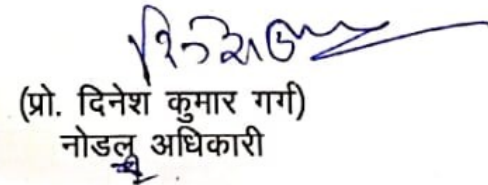 (प्रो. दिनेश कुमार गर्ग)
नोडल अधिकारी